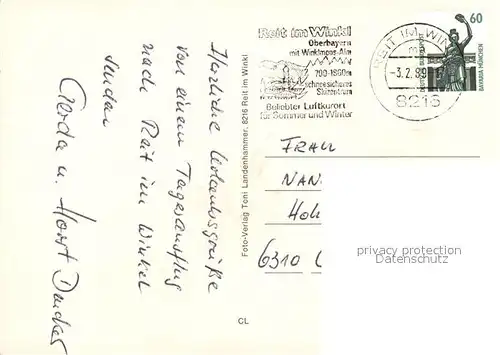 Herzliche Urlaubsgrüße
von einem Tagesausflug
nach Reit im Winkel
senden
Gerda u. Horst
Foto-Verlag Toni Landenhammer, 8216 Reit im Winkl
CL
Reit im Winkl
Oberbayern
mit Winklmoos-Alm
700-1800m
schneesicheres
Skizentrum
Beliebter Luftkurort
für Sommer und Winter
REIT IM WINKL
-3.2.89
8216
60
DEUTSCHE BUNDESPOST
BAVARIA MÜNCHEN
FRAU
NAN
HOH
6310
privacy protection